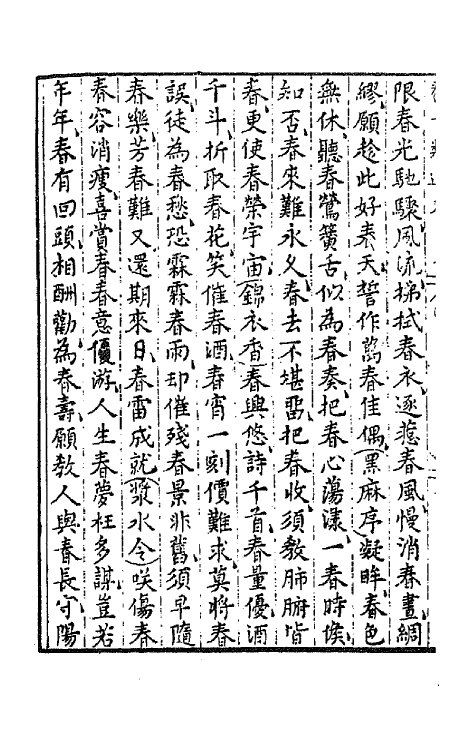 限春光馳驟風流揚拭春衣逐蕋春風慢消春晝綢
繆願趁此好春天誓作萬春佳偶黑麻序凝眸春色
無休聽春鶯簧舌似為春奏把春心蕩漾一春時候
知否春來難永久春去不堪畱把春收須教肺腑皆
春更使春榮宇宙錦衣香春興悠詩千首春量優酒
千斗折取春花笑催春酒春宵一刻價難求莫將春
誤徒為春愁恐霖霖春雨却催殘春景非舊須早隨
春樂芳春難又還期來日春雷成就漿水令咲傷春
春容消瘦喜賞春春意優游人生春夢枉多謀豈若
年年春有回頭相酬勸為春壽願教人與春長守陽